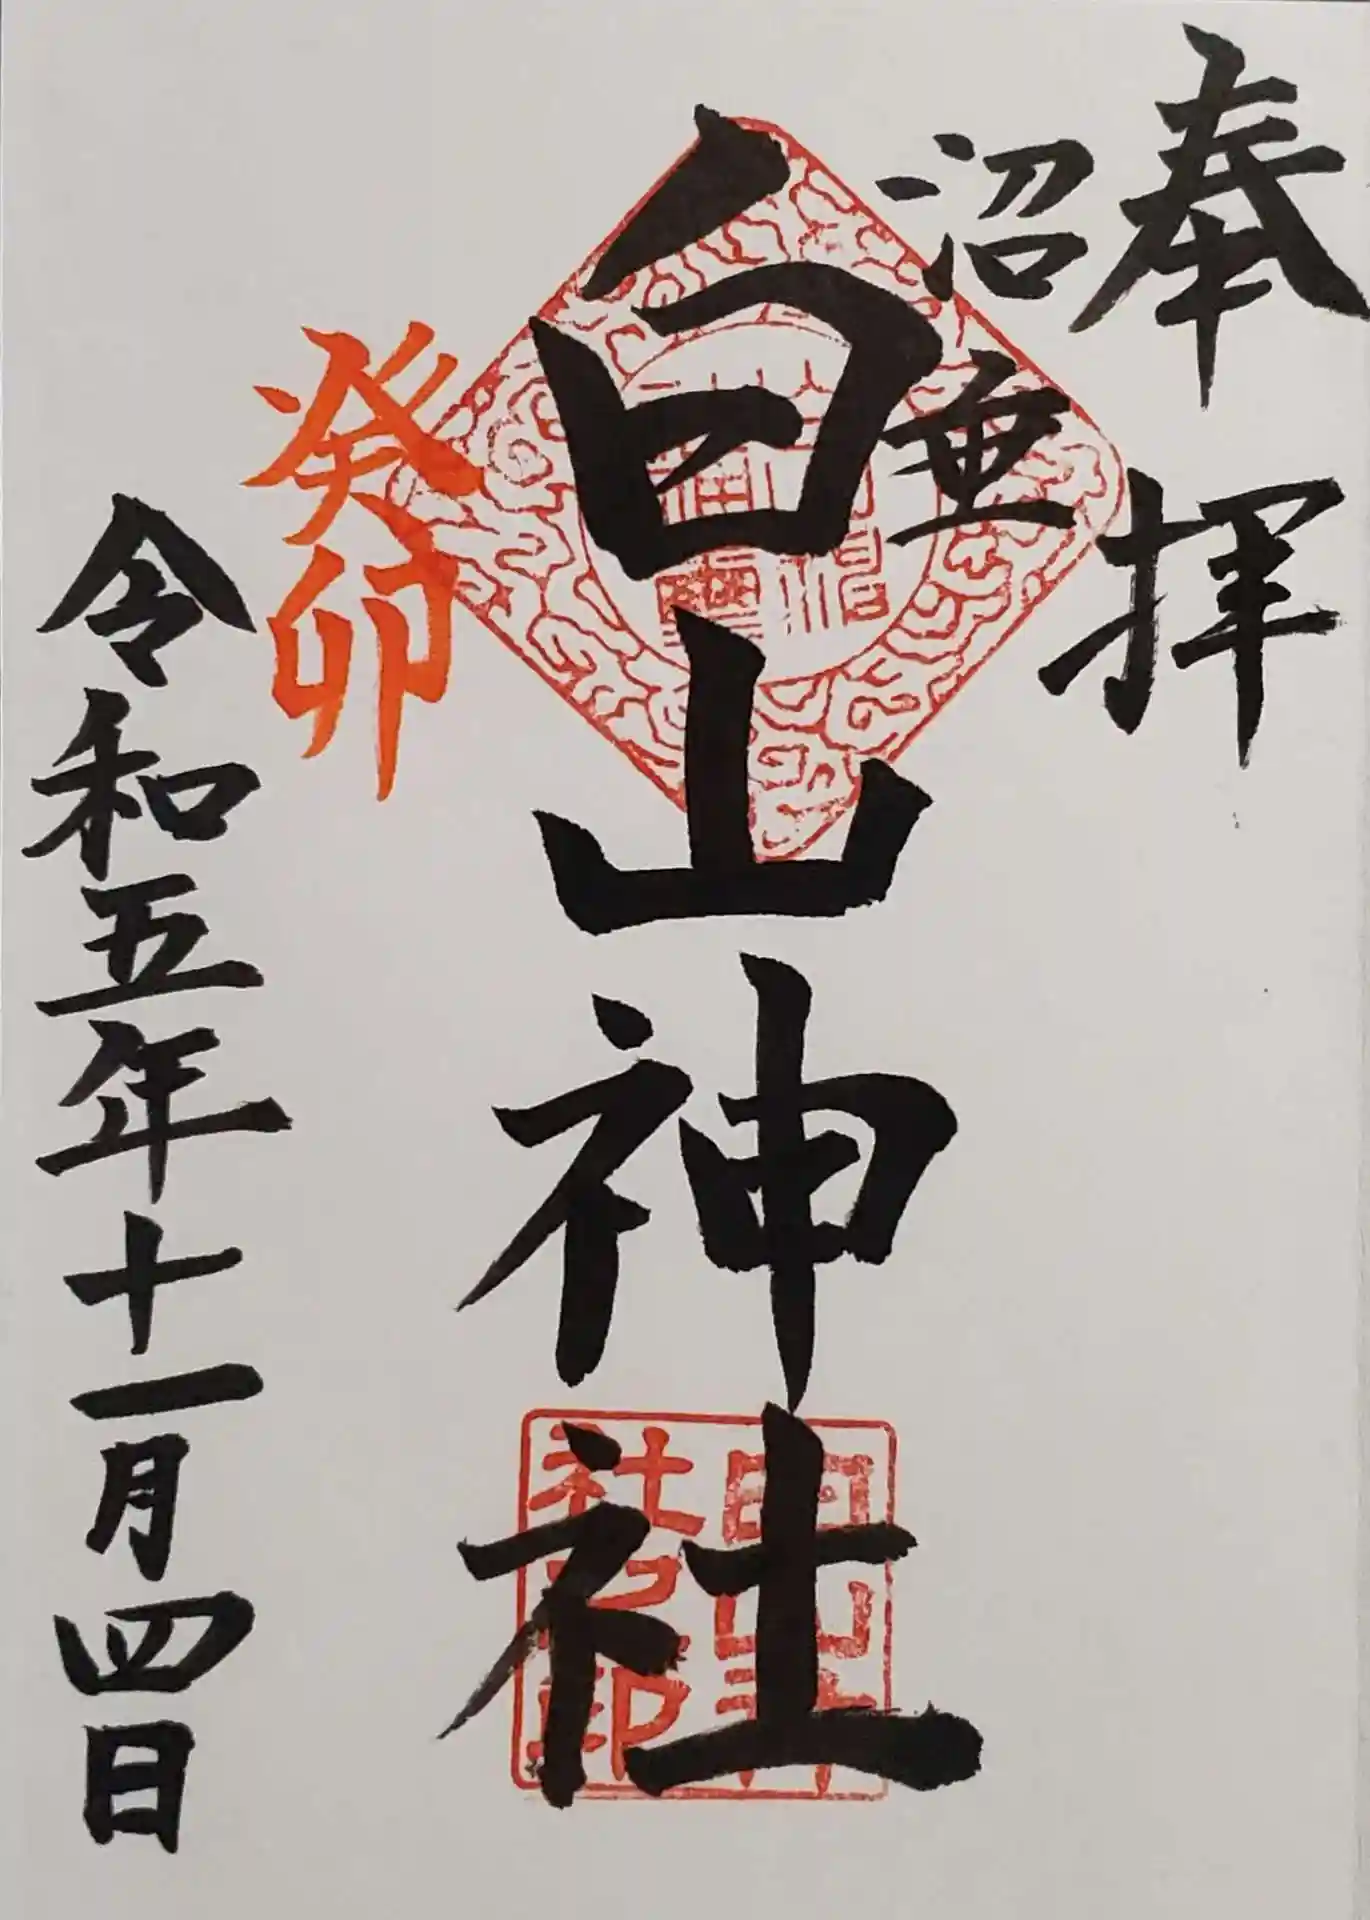 奉拝
沼垂
白山神社
癸卯
令和五年十一月四日